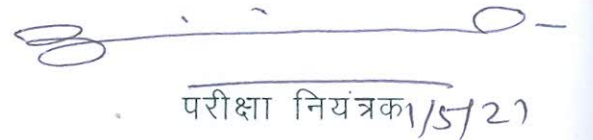 परीक्षा नियंत्रक 1/5/21